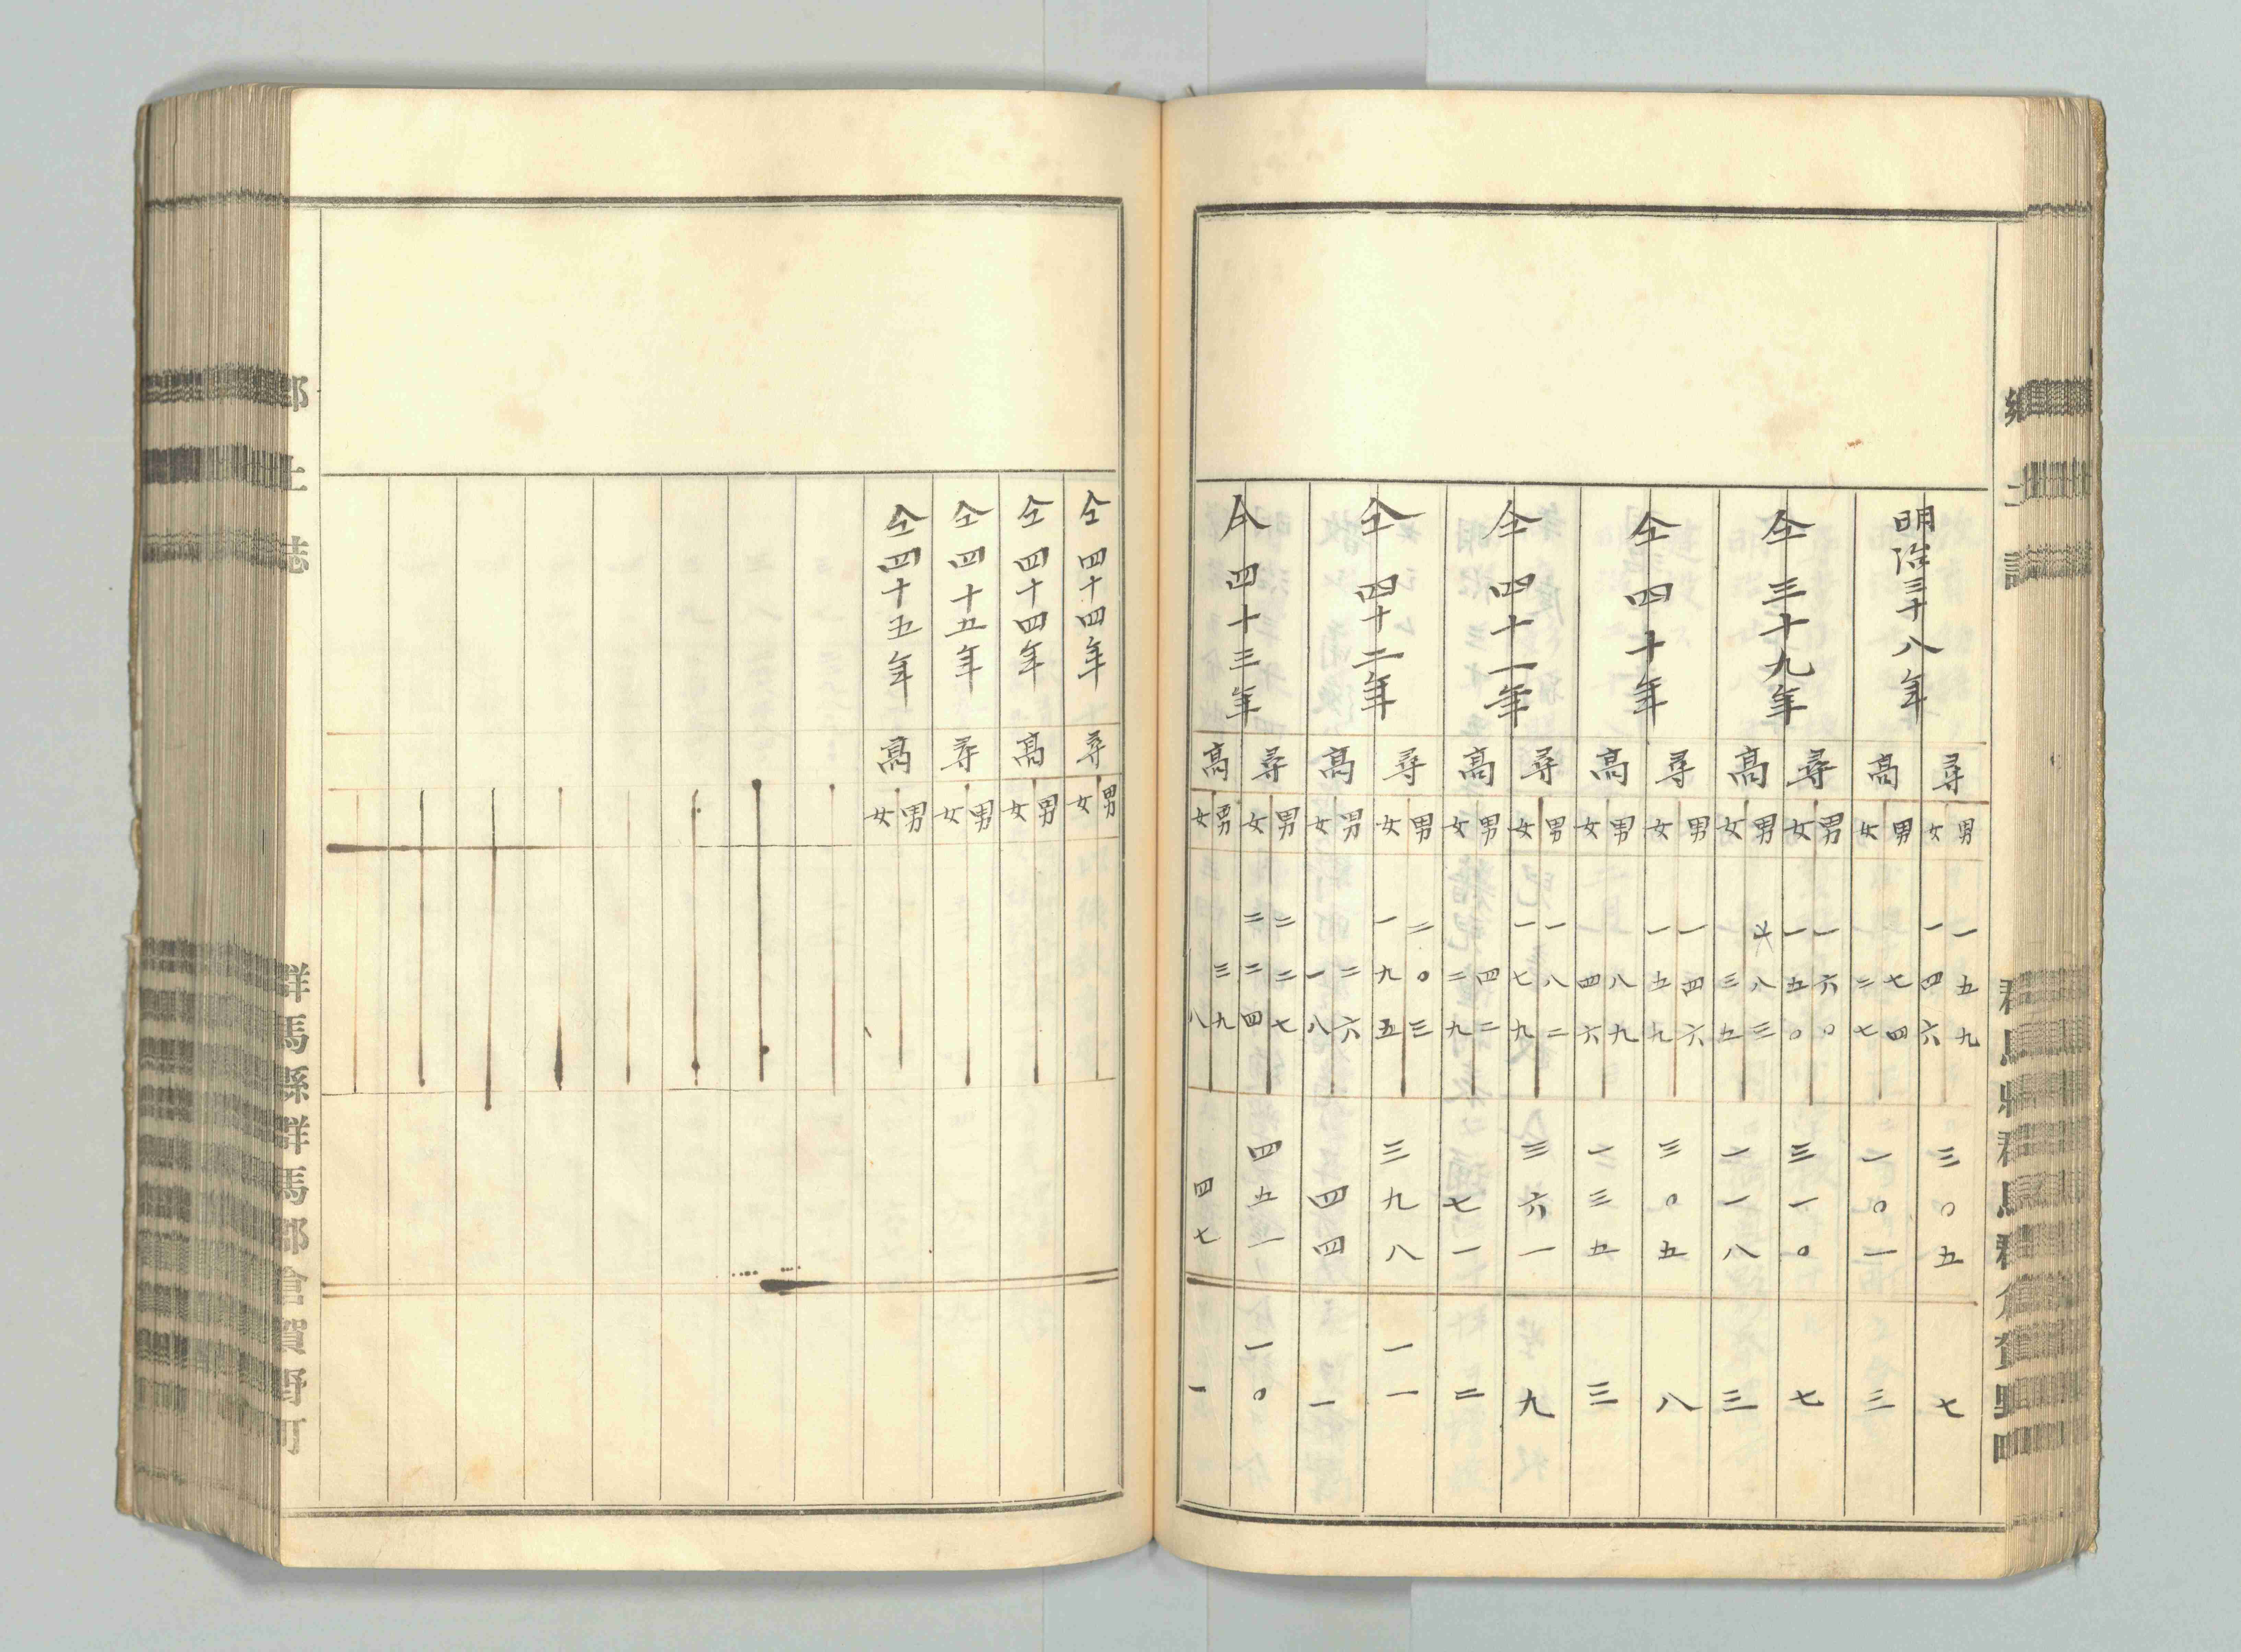 郷土誌
群馬縣群馬郡倉賀野町
明治三十八年
尋
男 一五九
女 一四六
三〇五
七
高
男 七四
女 二七
一〇一
三
仝三十九年
尋
男 一六〇
女 一五〇
三一〇
七
高
男 八三
女 三五
一一八
三
仝四十年
尋
男 一四六
女 一五九
三〇五
八
高
男 八九
女 四六
一三五
三
仝四十一年
尋
男 一八二
女 一七九
三六一
九
高
男 四二
女 二九
七一
二
仝四十二年
尋
男 二〇三
女 一九五
三九八
一一
高
男 二六
女 一八
四四
一
仝四十三年
尋
男 二二七
女 二二四
四五一
一〇
高
男 三九
女 八
四七
一
仝四十四年
尋
男
女
仝四十四年
高
男
女
仝四十五年
尋
男
女
仝四十五年
高
男
女
郷土誌
群馬縣群馬郡倉賀野町